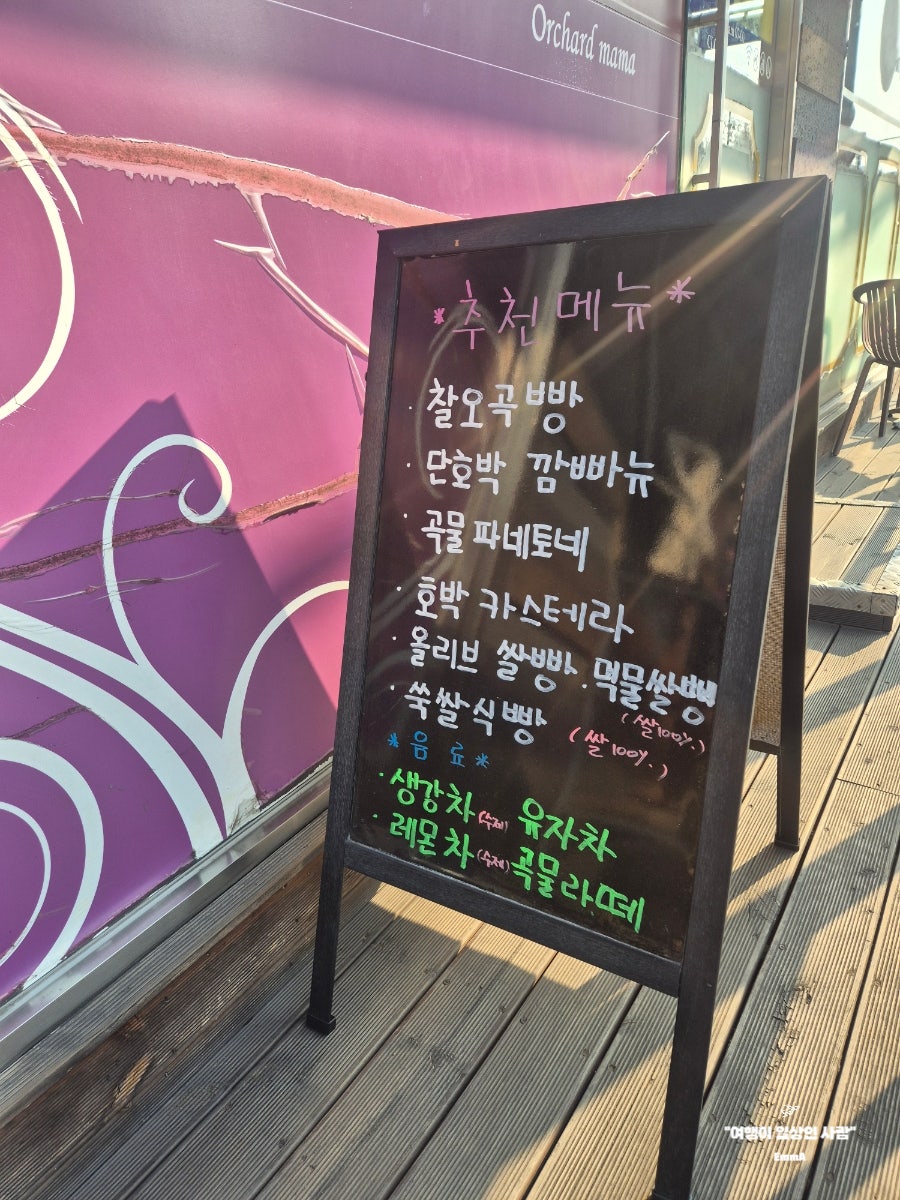 Orchard mama
*추천메뉴*
· 찰오곡빵
· 단호박 깜빠뉴
· 곡물파네토네
· 호박 카스테라
· 올리브 쌀빵 · 먹물쌀빵
(쌀100%)
· 쑥쌀식빵 (쌀100%)
*음료*
· 생강차(수제) 유자차
· 레몬차(수제) 곡물라떼
"여행이 일상인 사람"
EmmA